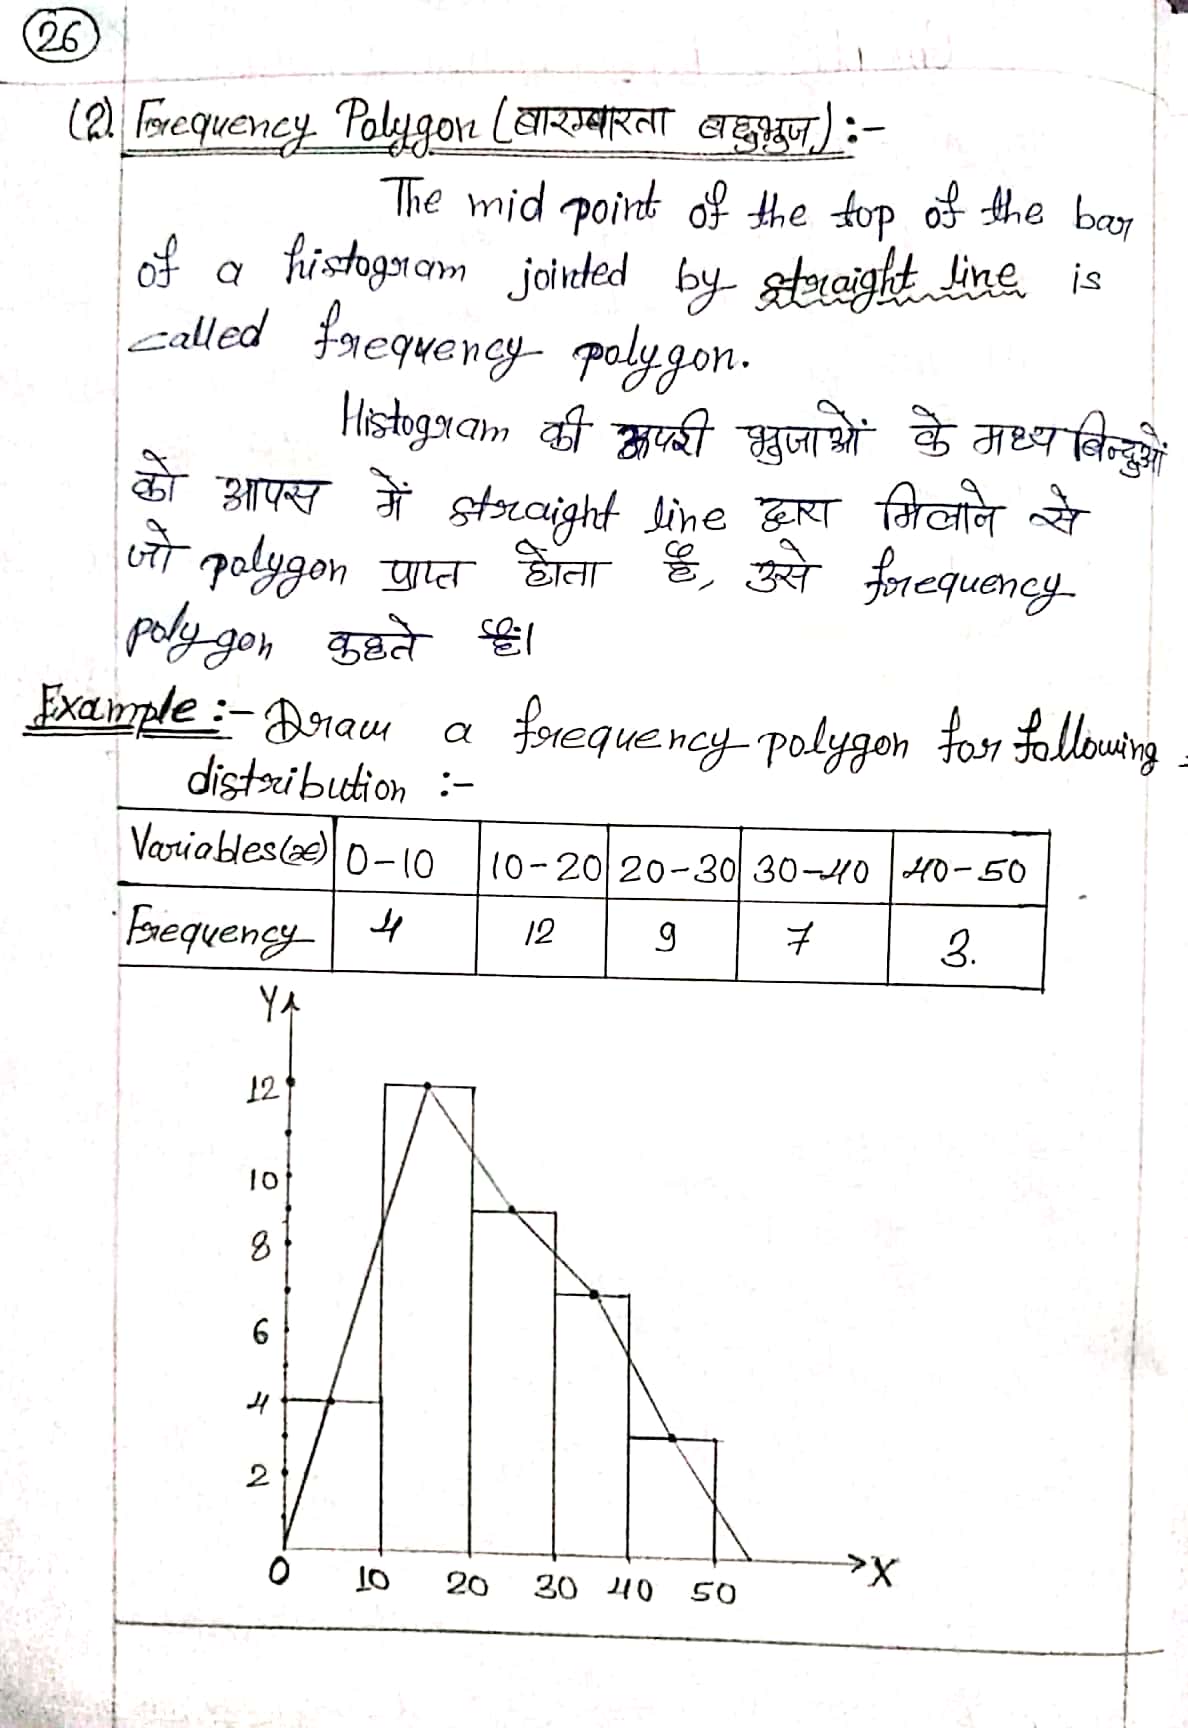 26
(2) Frequency Polygon (बारम्बारता बहुभुज) :-
The mid point of the top of the bar
of a histogram jointed by straight line is
called frequency polygon.
Histogram की ऊपरी भुजाओं के मध्य बिन्दुओं
को आपस में straight line द्वारा मिलाने से
जो polygon प्राप्त होता है, उसे frequency
polygon कहते हैं।
Example :- Draw a frequency polygon for following
distribution :-
Variables(x) 0-10 10-20 20-30 30-40 40-50
Frequency 4 12 9 7 3.
Y
12
10
8
6
4
2
0 10 20 30 40 50 X